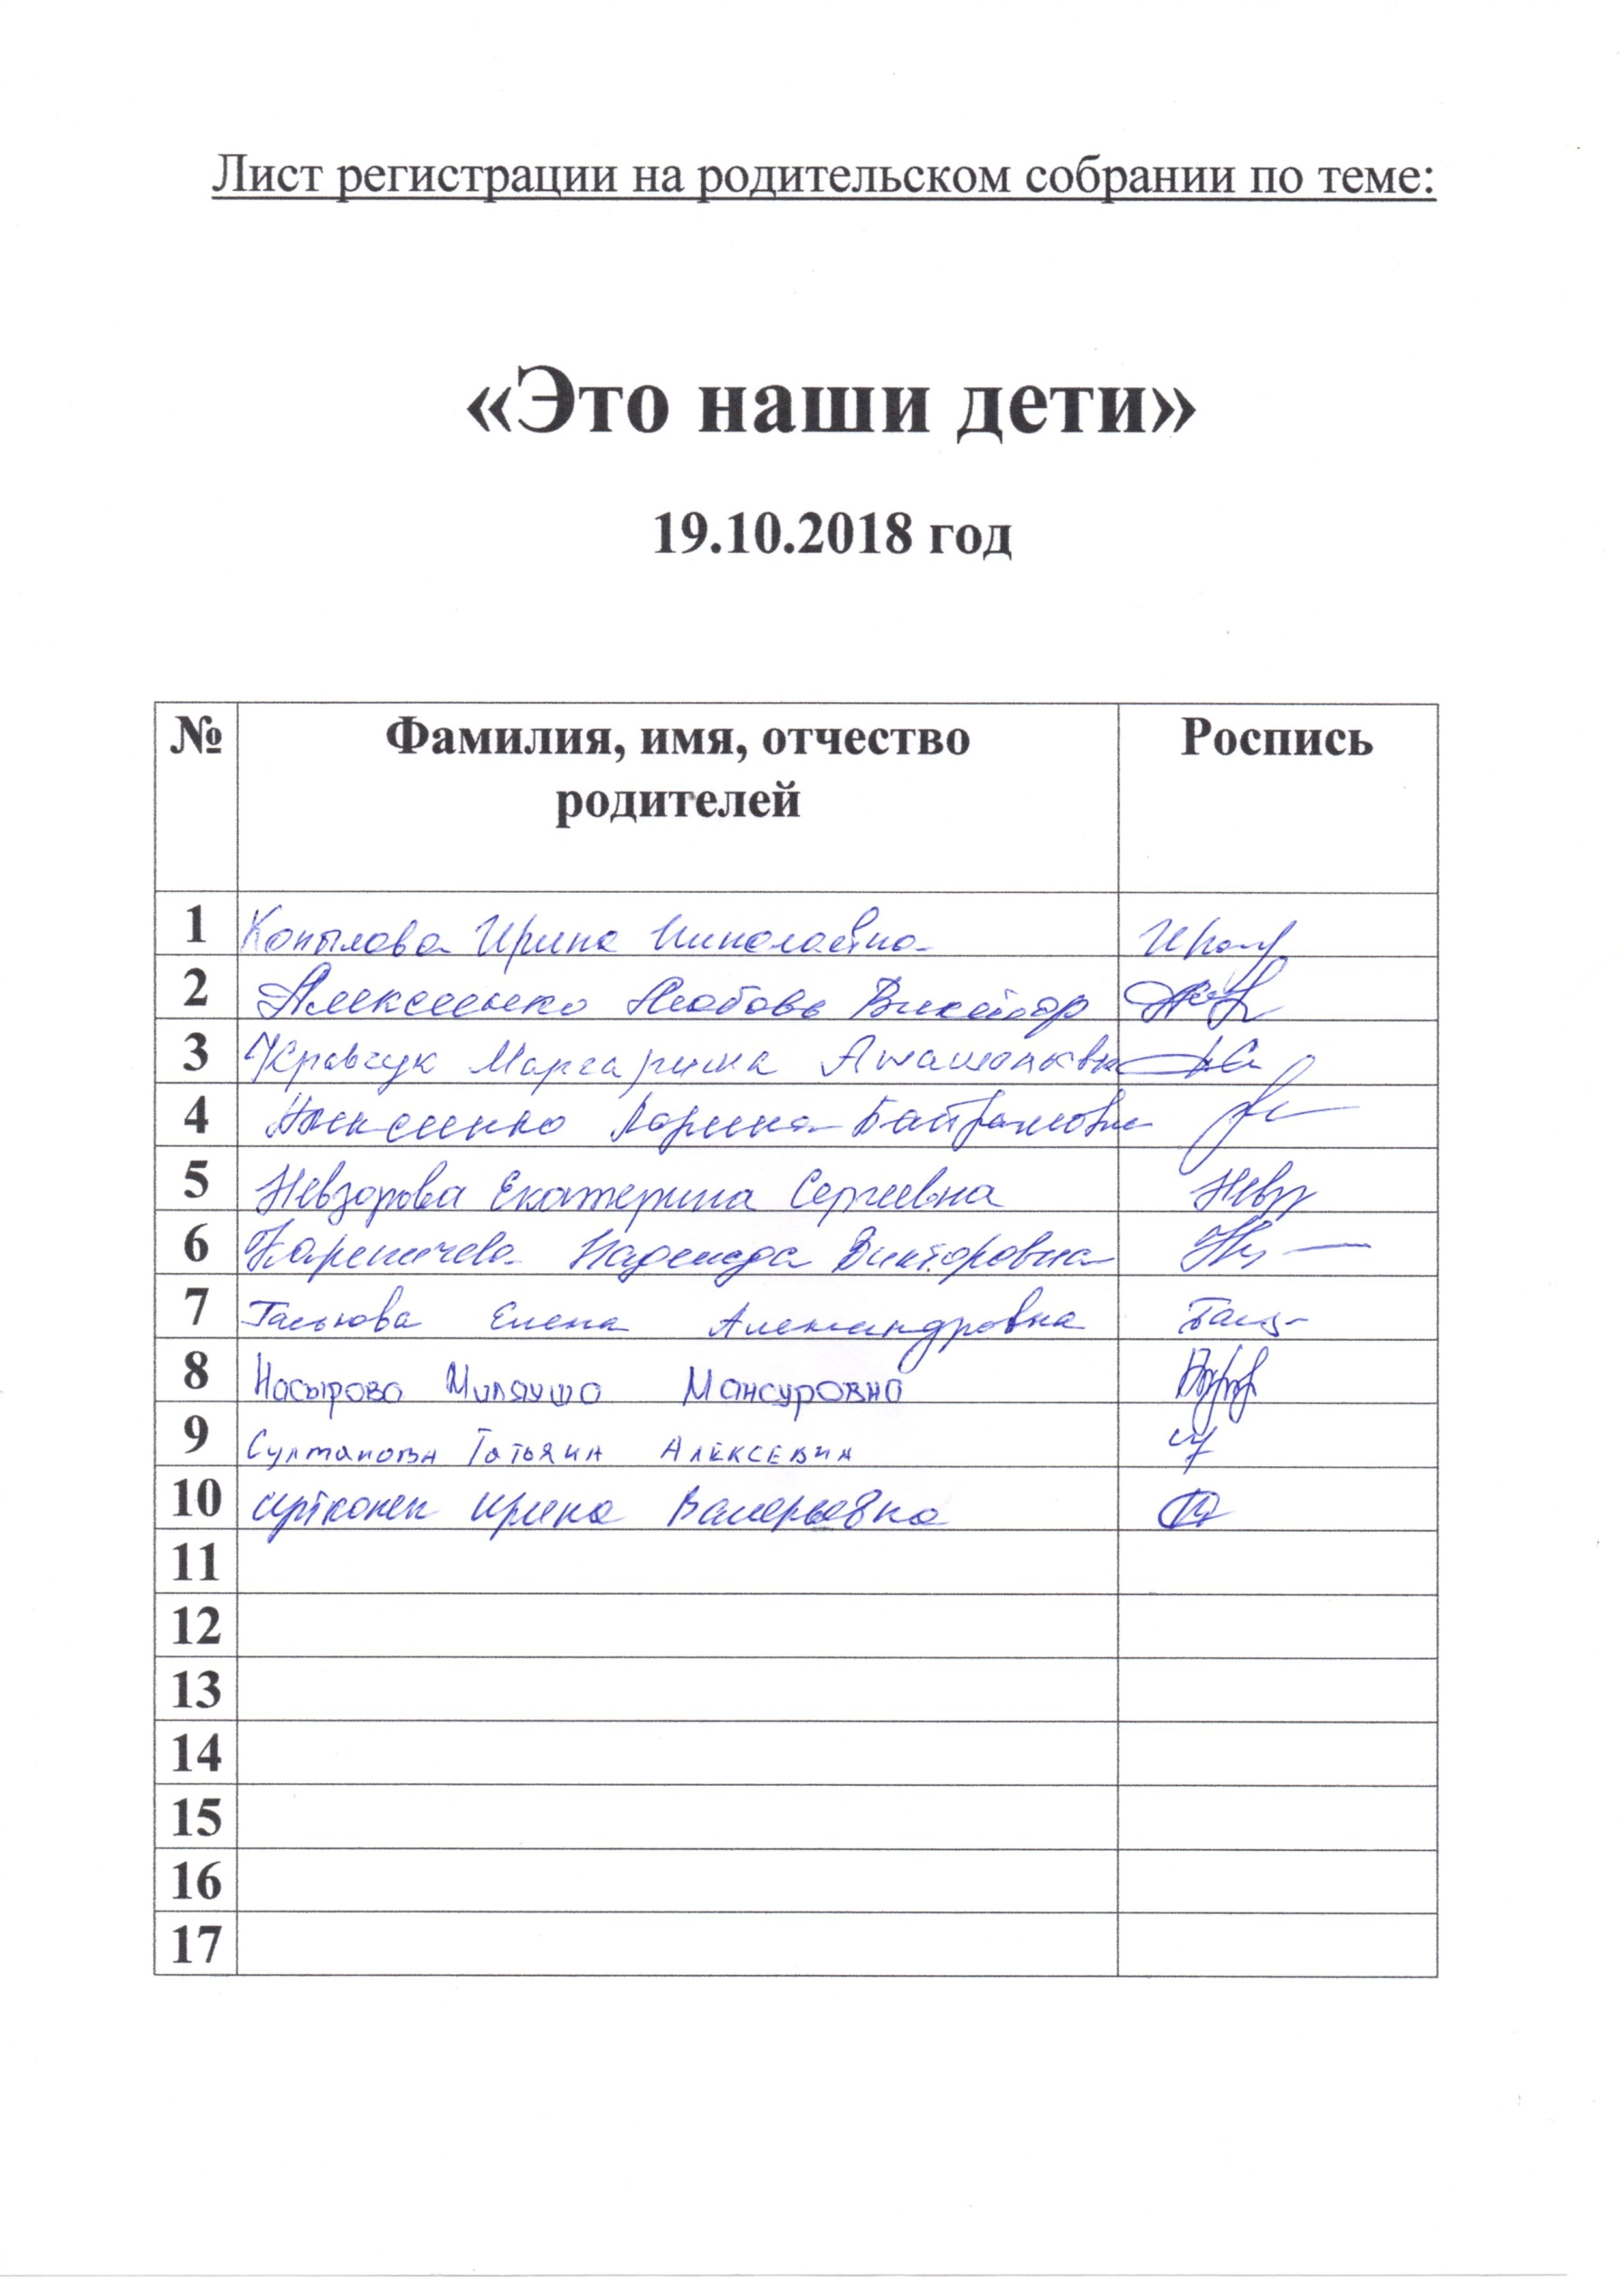 Лист регистрации на родительском собрании по теме:
«Это наши дети»
19.10.2018 год
№ Фамилия, имя, отчество Роспись
родителей
1 Копылова Ирина Николаевна
2 Алексеенко Любовь Виктор
3 Кравчук Маргарита
4 Алексеенко Байрамовна
5 Невзорова Екатерина Сергеевна Невз
6 Надежда Викторовна
7 Елена Александровна
8 Насырова Миляуша Мансуровна
9 Султанова Татьяна Алексевна
10 Ирина Валерьевна
11
12
13
14
15
16
17